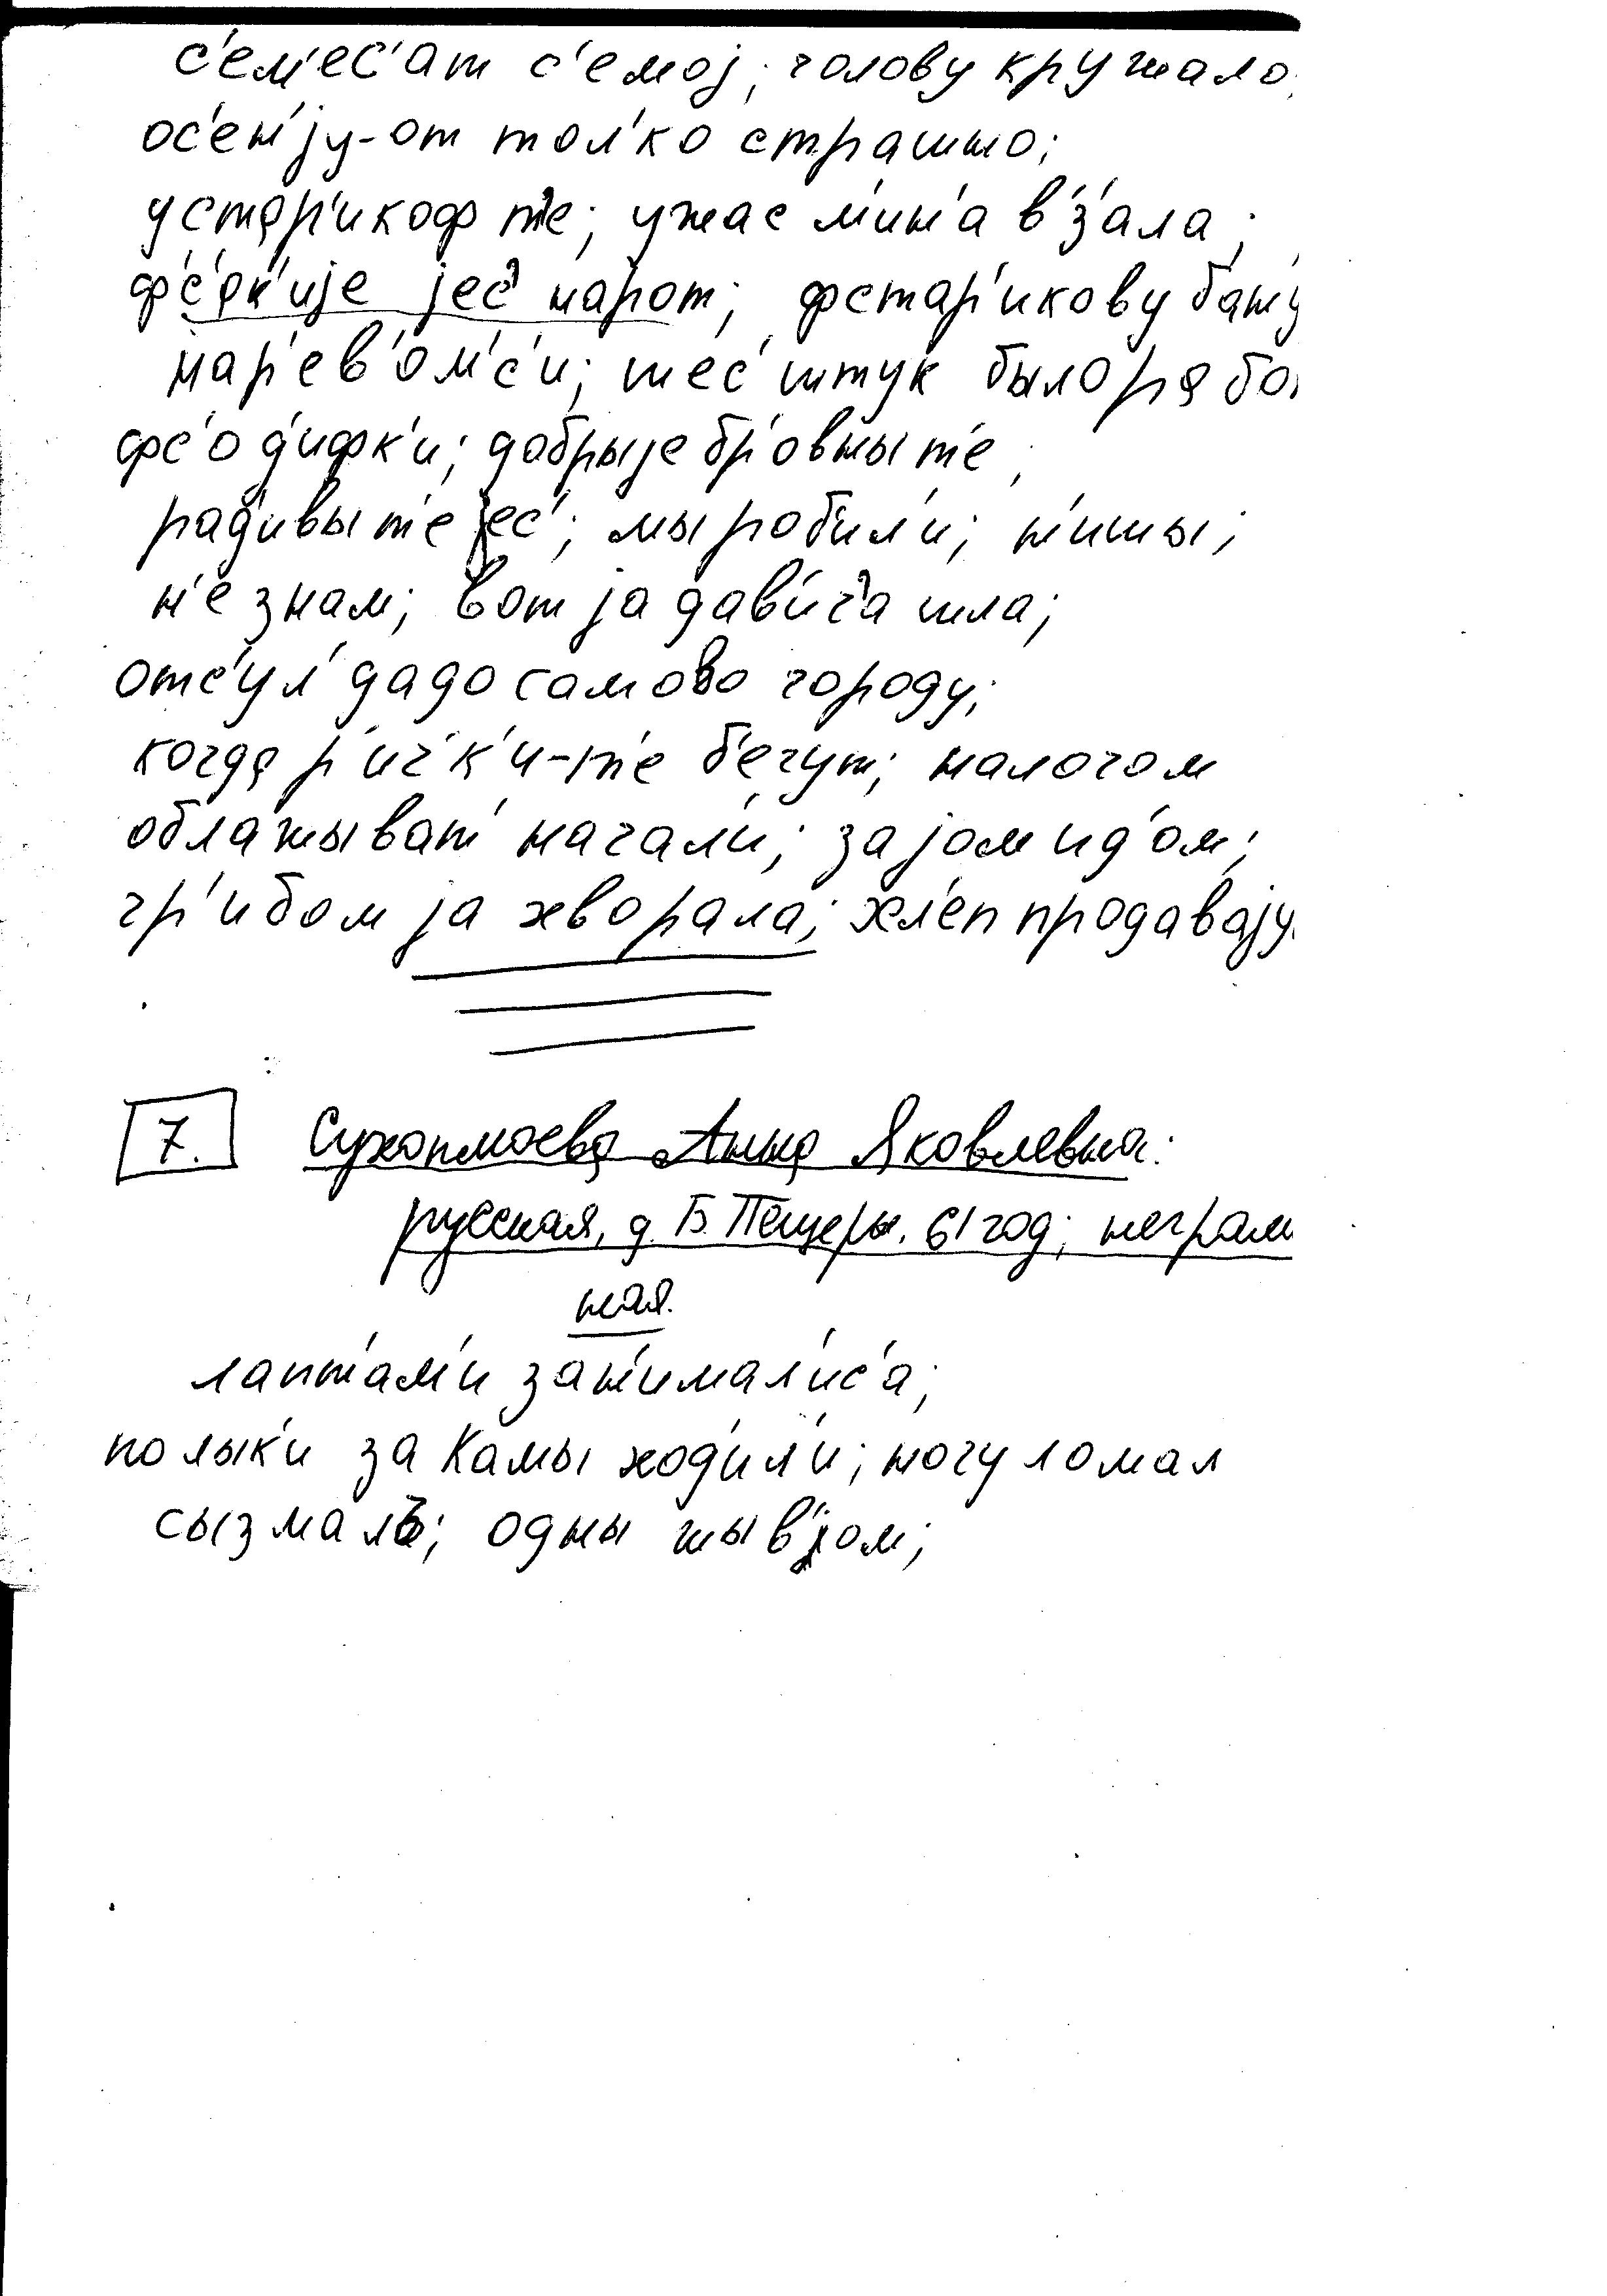 с'ем'ес'ат с'емој; голову кружало;
ос'ен'ју-от тол'ко страшно;
устар'икоф т'е; ужас м'ин'а в'з'ала;
ф'с'ак'ије јес' нарот; фстар'икову бан'у
нар'ев'ом'с'и; шес' штук было
фс'о д'ифк'и; добрыје бр'овны т'е;
рад'ивы т'е јес'; мы роб'ил'и; н'ишы;
н'е знам; вот ја дав'ич'а шла;
отс'ул' да до самово городу;
когда р'ич'к'и-т'е б'егут; налогом
облажыват' начал'и; зајом ид'ом;
гр'ибом ја хворала; хл'еп продавају
7. Анна Яковлевна:
русская, д. Б. Пещеры. 61 год; неграм
ная.
лапт'ам'и зан'имал'ис'а;
по лык'и за Камы ход'ил'и; ногу ломал
одны жыв'јом;